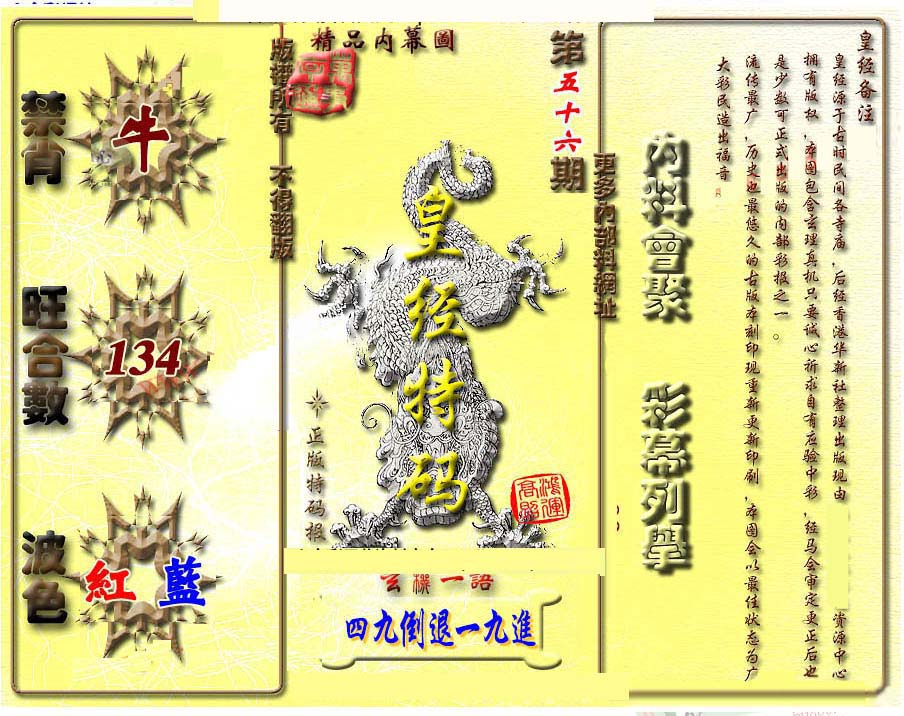 精品內幕圖
第五十六期
版權所有 不得翻版
更多內部料網址
禁肖
牛
旺合數
134
波色
紅 藍
皇经特码
正版特码报
鴻運高照
玄機一語
四九倒退一九進
內料會聚 彩幕列舉
皇经备注
皇经源于古时民间各寺庙，后经香港华新社整理出版现由 资源中心
拥有版权，本图包含玄理真机只要诚心祈求自有应验中彩，经马会审定更正后也
是少数可正式出版的内部彩报之一。
流传最广，历史也最悠久的古版本刻印现重新更新印刷，本图会以最佳状态为广
大彩民造出福音